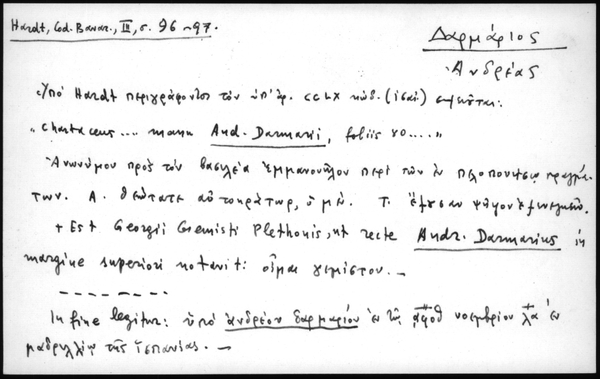 Hardt, Cod. Bavar., III, σ. 96-97.
Δαρμάριος
Ἀνδρέας
Ὑπό Hardt περιγράφοντος τὸν ὑπ' ἀρ. CCLX κώδ. σημειοῦται:
"Chartaceus.... manu And. Darmarii, foliis 80....."
Ἀνωνύμου πρὸς τὸν βασιλέα Ἐμμανουῆλον περὶ τῶν ἐν Πελοποννήσῳ πραγμά-
των. Α. θειότατε αὐτοκράτωρ, Τ.
+ Est Georgii Gemisti Plethonis, ut recte Andr. Darmarius in
margine superiori notavit: οἶμαι γεμίστου. —
In fine legitur: ὑπό ἀνδρέου δαρμαρίου ἐν τῇ ͵αφοθ νοεμβρίου λα ἐν
μαδρυλλίῳ τῆς Ἱσπανίας. —